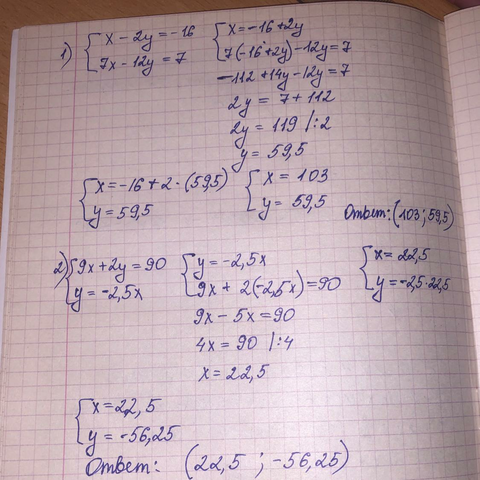 1) { x - 2y = -16
7x - 12y = 7
{ x = -16 + 2y
7(-16 + 2y) - 12y = 7
-112 + 14y - 12y = 7
2y = 7 + 112
2y = 119 |:2
y = 59,5
{ x = -16 + 2 · (59,5)
y = 59,5
{ x = 103
y = 59,5
Ответ: (103 ; 59,5)
2) { 9x + 2y = 90
y = -2,5x
{ y = -2,5x
9x + 2(-2,5x) = 90
9x - 5x = 90
4x = 90 |:4
x = 22,5
{ x = 22,5
y = -2,5 · 22,5
{ x = 22,5
y = -56,25
Ответ: (22,5 ; -56,25)